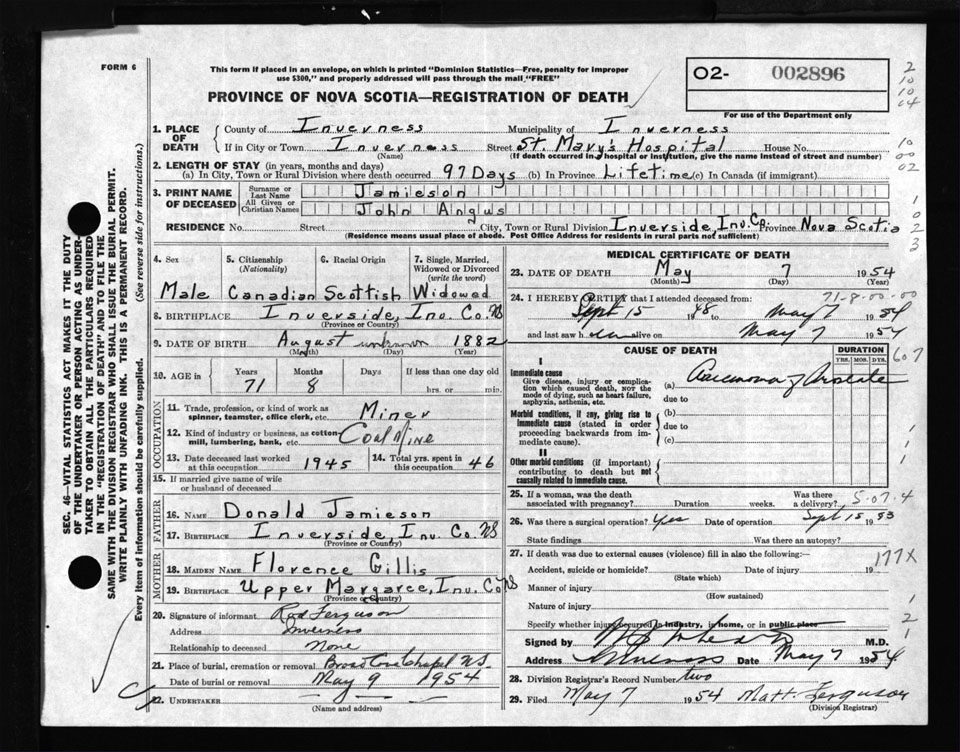 FORM 6
This form if placed in an envelope, on which is printed "Dominion Statistics—Free, penalty for improper
use $300," and properly addressed will pass through the mail "FREE"
PROVINCE OF NOVA SCOTIA—REGISTRATION OF DEATH
O2- 002896
For use of the Department only
2
10
10
04
10
00
02
1
0
2
3
SEC. 46—VITAL STATISTICS ACT MAKES IT THE DUTY
OF THE UNDERTAKER OR PERSON ACTING AS UNDER-
TAKER TO OBTAIN ALL THE PARTICULARS REQUIRED
IN THE "REGISTRATION OF DEATH" AND TO FILE THE
SAME WITH THE DIVISION REGISTRAR WHO SHALL ISSUE THE BURIAL PERMIT.
WRITE PLAINLY WITH UNFADING INK. THIS IS A PERMANENT RECORD.
Every item of information should be carefully supplied. (See reverse side for instructions.)
1. PLACE OF DEATH
County of Inverness Municipality of Inverness
If in City or Town Inverness Street St. Mary's Hospital House No.
(Name) (If death occurred in a hospital or institution, give the name instead of street and number)
2. LENGTH OF STAY (in years, months and days)
(a) In City, Town or Rural Division where death occurred 97 Days (b) In Province Lifetime (c) In Canada (if immigrant)
3. PRINT NAME OF DECEASED
Surname or Last Name Jamieson
All Given or Christian Names John Angus
RESIDENCE No. Street City, Town or Rural Division Inverside, Inv. Co. Province Nova Scotia
(Residence means usual place of abode. Post Office Address for residents in rural parts not sufficient)
4. Sex 5. Citizenship (Nationality) 6. Racial Origin 7. Single, Married, Widowed or Divorced (write the word)
Male Canadian Scottish Widowed
8. BIRTHPLACE Inverside, Inv. Co. NS
(Province or Country)
9. DATE OF BIRTH August unknown 1882
(Month) (Day) (Year)
10. AGE in Years Months Days If less than one day old
71 8 hrs. or min.
OCCUPATION
11. Trade, profession, or kind of work as spinner, teamster, office clerk, etc. Miner
12. Kind of industry or business, as cotton mill, lumbering, bank, etc. Coal Mine
13. Date deceased last worked at this occupation 1945 14. Total yrs. spent in this occupation 46
15. If married give name of wife or husband of deceased
FATHER
16. NAME Donald Jamieson
17. BIRTHPLACE Inverside, Inv. Co. NS
(Province or Country)
MOTHER
18. MAIDEN NAME Florence Gillis
19. BIRTHPLACE Upper Margaree, Inv. Co. NS
(Province or Country)
20. Signature of informant Rod Ferguson
Address Inverness
Relationship to deceased None
21. Place of burial, cremation or removal Broad Cove Chapel NS
Date of burial or removal May 9 1954
22. UNDERTAKER
(Name and address)
MEDICAL CERTIFICATE OF DEATH
23. DATE OF DEATH May 7 1954
(Month) (Day) (Year)
71-8-00-00
24. I HEREBY CERTIFY that I attended deceased from:
Sept 15 1948 to May 7 1954
and last saw h alive on May 7 1954
CAUSE OF DEATH DURATION
YRS. MOS. DYS.
607
I
Immediate cause
Give disease, injury or complication which caused death, NOT the mode of dying, such as heart failure, asphyxia, asthenia, etc.
(a) Carcinoma of Prostate
due to
Morbid conditions, if any, giving rise to immediate cause (stated in order proceeding backwards from immediate cause).
(b)
due to
(c)
II
Other morbid conditions (if important) contributing to death but not causally related to immediate cause.
1
1
1
25. If a woman, was the death associated with pregnancy? Duration weeks. Was there a delivery?
5-07-4
26. Was there a surgical operation? Yes Date of operation Sept 15 1953
State findings Was there an autopsy?
27. If death was due to external causes (violence) fill in also the following:—
Accident, suicide or homicide? Date of injury 19
177X
(State which)
Manner of injury
(How sustained)
Nature of injury
Specify whether injury occurred in industry, in home, or in public place
1
2
1
Signed by M.D.
Address Inverness Date May 7 1954
28. Division Registrar's Record Number two
29. Filed May 7 1954 Matt. Ferguson
(Division Registrar)